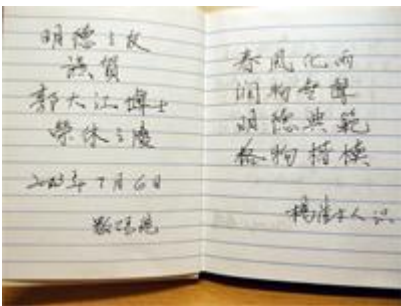 明德之友
誠賀
郭大江博士
榮休之慶
2023年7月6日
春風化雨
润物無聲
明德典範
格物楷模